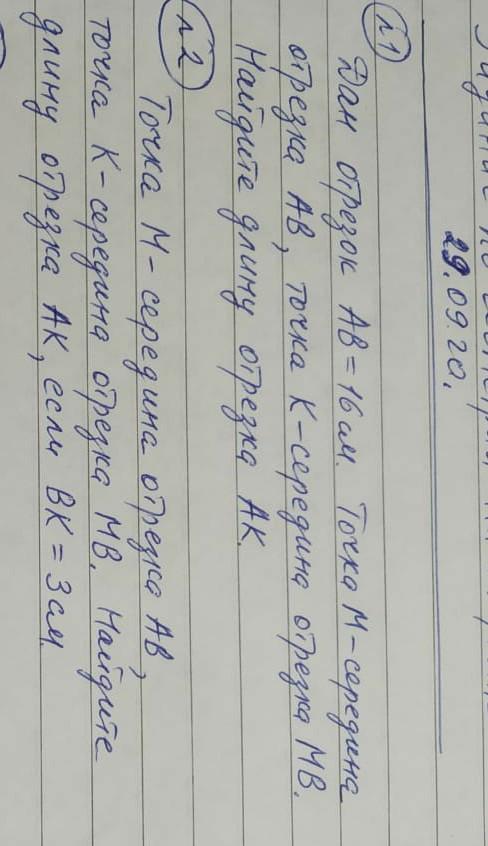 29.09.20.
л1
Дан отрезок АВ = 16 см. Точка М - середина
отрезка АВ, точка К - середина отрезка МВ.
Найдите длину отрезка АК.
л2
Точка М - середина отрезка АВ,
точка К - середина отрезка МВ. Найдите
длину отрезка АК, если ВК = 3 см.